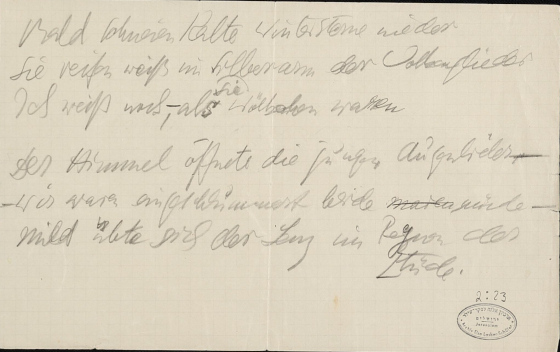 Bald schneien kalte Wintersterne nieder
Sie reifen weiß im Silberarm der
Ich weiß noch, als sie waren
Der Himmel öffnete die jungen Augenlider
– wir waren eingeschlummert beide müde –
Mild übte sich der Lenz im Regnen der
Etüde.
2:23